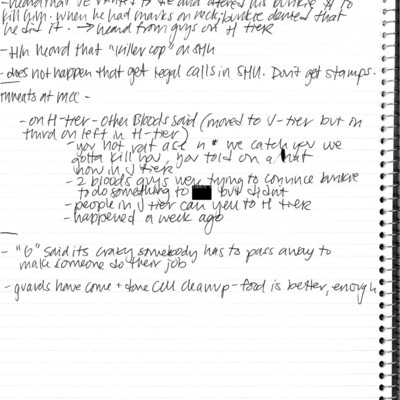 - heard that wanted to die and offered his bunkie $ to
kill him. when he had marks on neck, bunkie denied that
he did it. → heard from guys on H tier
- Hm heard that "killer cop" on SHU
- does not happen that get legal calls in SHU. Don't get stamps.
threats at MCC -
- on H-tier - other Bloods said (moved to V-tier but on
third on left in H-tier)
- you hot rat ass n* we catch you we
gotta kill you, you told on a
now in J tier
- 2 bloods guys very trying to convince bunkie
to do something to but didn't
- people in J tier can yell to H tier
- happened a week ago
- "G" said its crazy somebody has to pass away to
make someone do their job
- guards have come + done cell cleanup - food is better, enough